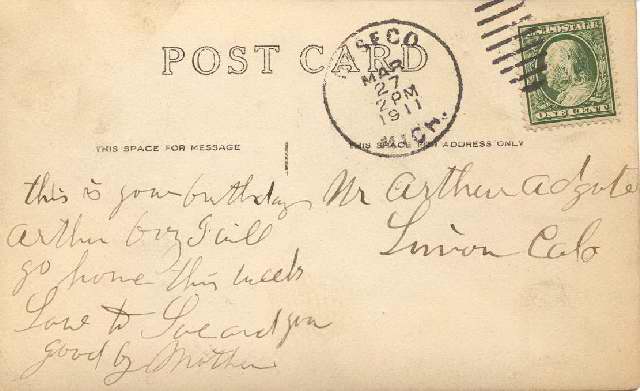 POST CARD
SECO
MAR
27
2 PM
1911
MICH.
ONE CENT
THIS SPACE FOR MESSAGE
THIS SPACE FOR ADDRESS ONLY
this is your birthday
Arthur boy I will
go home this week
Love to and you
good by Mother
Mr Arthur Adgate
Simon Calo